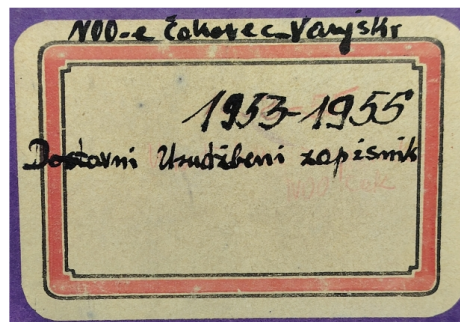 NOO-e Čakovec-Vanjski
1953-1955
Dostavni Urudžbeni zapisnik